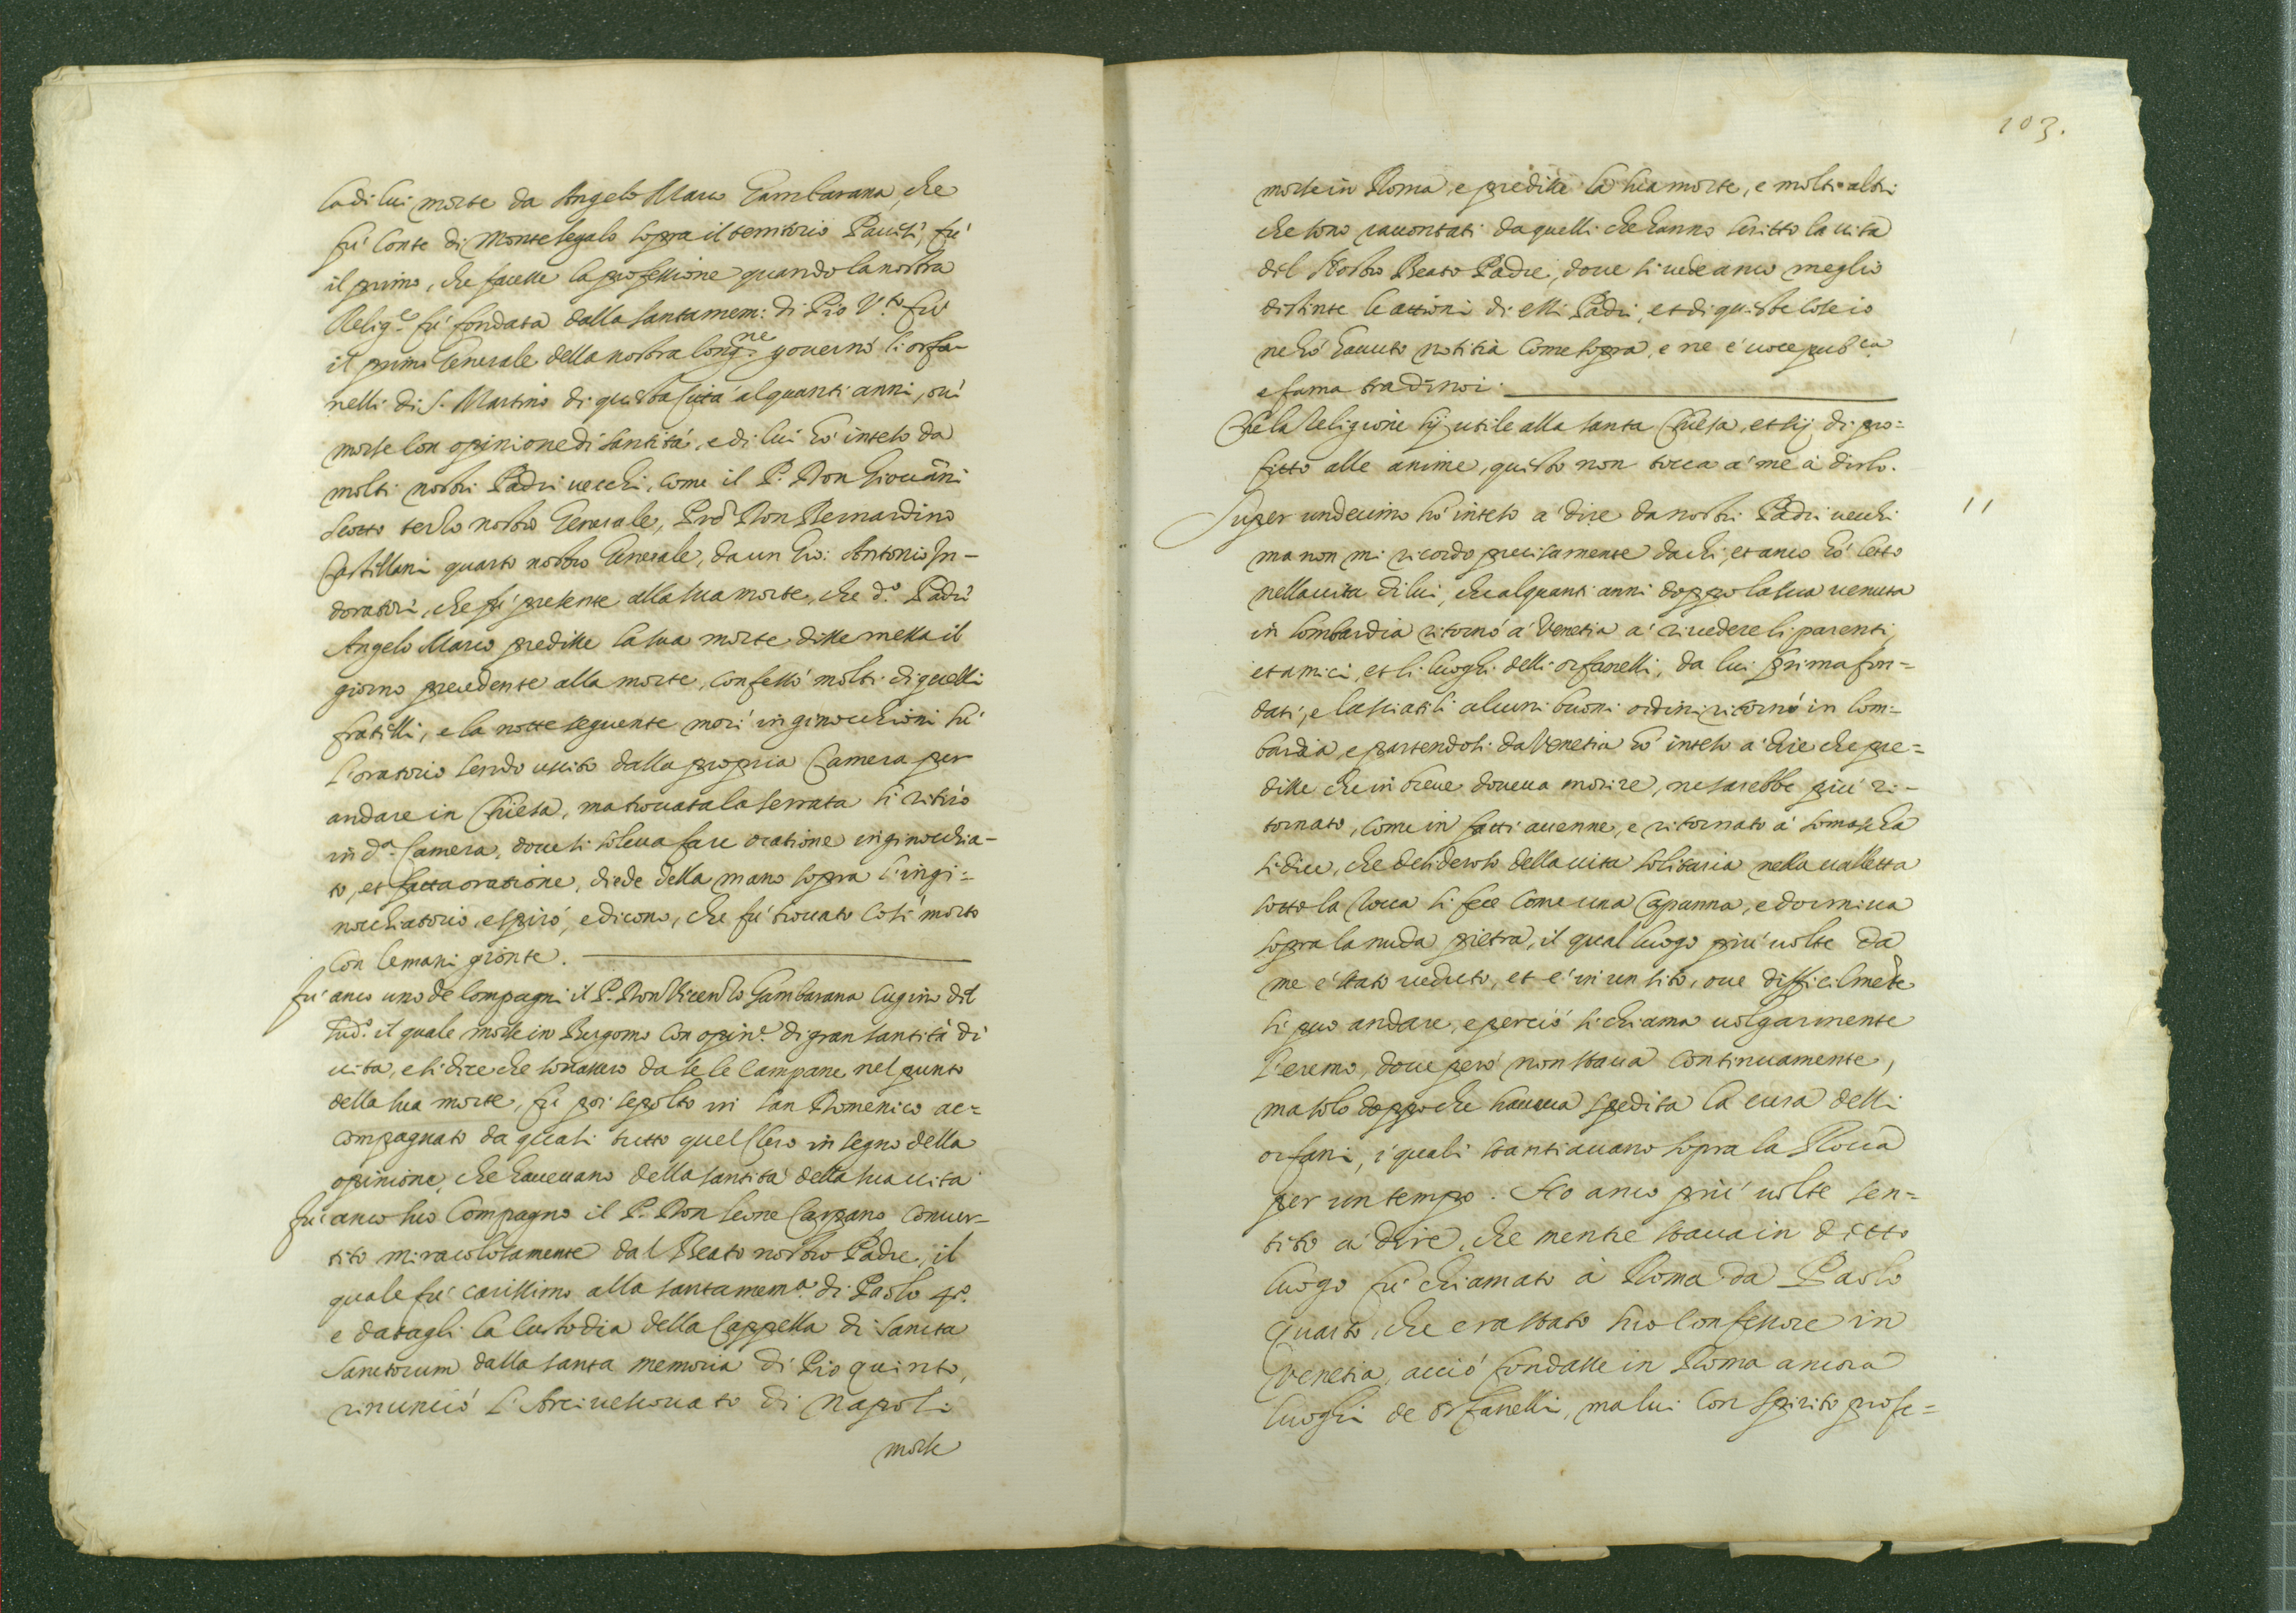 la di lui morte da Angelo Marco Gambarana, che
fù Conte di Montesegalo sopra il territorio Pavese, fù
il primo, che facesse la professione quando la nostra
Relig.e fù fondata dalla santa mem: di Pio V.to fù
il primo Generale della nostra Cong.ne governò li orfa-
nelli di S. Martino di questa Città alquanti anni, ovi
morse con opinione di santità, e di lui hò inteso da
molti nostri Padri vecchi, come il P. Don Giovanni
Scotto terzo nostro Generale, Prd Don Bernardino
Castillani quarto nostro Generale, da un Gio: Antonio In-
doratori, che fù presente alla sua morte, che d.o Padre
Angelo Marco predisse la sua morte disse messa il
giorno precedente alla morte, confessò molti di quelli
fratelli, e la notte seguente morì inginocchioni sù
l'oratorio sendo uscito dalla propria Camera per
andare in Chiesa, ma trovatala serrata si ritirò
in d.a Camera, dove si soleva fare oratione inginocchia-
to, et fatta oratione, diede della mano sopra l'ingi=
nocchiatorio, e spirò, e dicono, che fù trovato così morto
con le mani gionte.
fù anco uno de Compagni il P. Don Vicenzo Gambarana Cugino del
sud.o il quale morse in Bergomo con opin.e di gran santità di
vita, e si dice che sonassero da se le Campane nel punto
della sua morte, fu poi sepolto in san Domenico ac=
compagnato da quasi tutto quel Clero in segno della
opinione, che havevano della santità della sua vita
fù anco suo Compagno il P. Don Leone Carpano conver-
tito miracolosamente dal Beato nostro Padre, il
quale fù carissimo alla santa mem.a di Paolo 4.o
e datagli la Custodia della Cappella di Sancta
Sanctorum dalla santa memoria di Pio quinto,
rinunciò l'Arcivescovato di Napoli
morse
103.
morse in Roma, e predisse la sua morte, e molti altri
che sono raccontati da quelli che hanno scritto la vita
del Nostro Beato Padre, dove si vede anco meglio
distinte le attioni di essi Padri, et di queste cose io
ne hò havuto notitia come sopra, e ne è voce pub.ca
e fama tra di noi.
Che la Religione sij utile alla santa Chiesa, et sij di pro=
fitto alle anime, questo non tocca a' me à dirlo.
Super undecimo hò inteso a' dire da nostri Padri vecchi 11
ma non mi ricordo precisamente da chi, et anco hò letto
nella vita di lui, che alquanti anni doppo la sua venuta
in Lombardia ritornò a' Venetia a' rivedere li parenti,
et amici, et li luoghi delli orfanelli, da lui prima fon=
dati, e lasciatili alcuni buoni ordini ritornò in Lom=
bardia e partendosi da Venetia hò inteso a' dire che pre=
disse che in breve doveva morire, ne sarebbe più ri-
tornato, come in fatti avenne, e ritornato à Somascha
si dice, che desideroso della vita solitaria nella valletta
sotto la Rocca si fece come una Capanna, e dormiva
sopra la nuda pietra, il qual luogo più volte da
me è stato veduto, et è in un sito, ove difficilmẽte
si puo andare, e perciò si chiama volgarmente
l'eremo, dove però non stava continuamente,
ma solo doppo che haveva spedita la cura delli
orfani, i quali stantiavano sopra la Rocca
per un tempo. Ho anco più volte sen=
tito a' dire, che mentre stava in detto
luogo fù chiamato à Roma da Paolo
Quarto, che era stato suo Confessore in
Venetia, acciò fondasse in Roma ancora
luoghi de Orfanelli, ma lui con spirito profe=